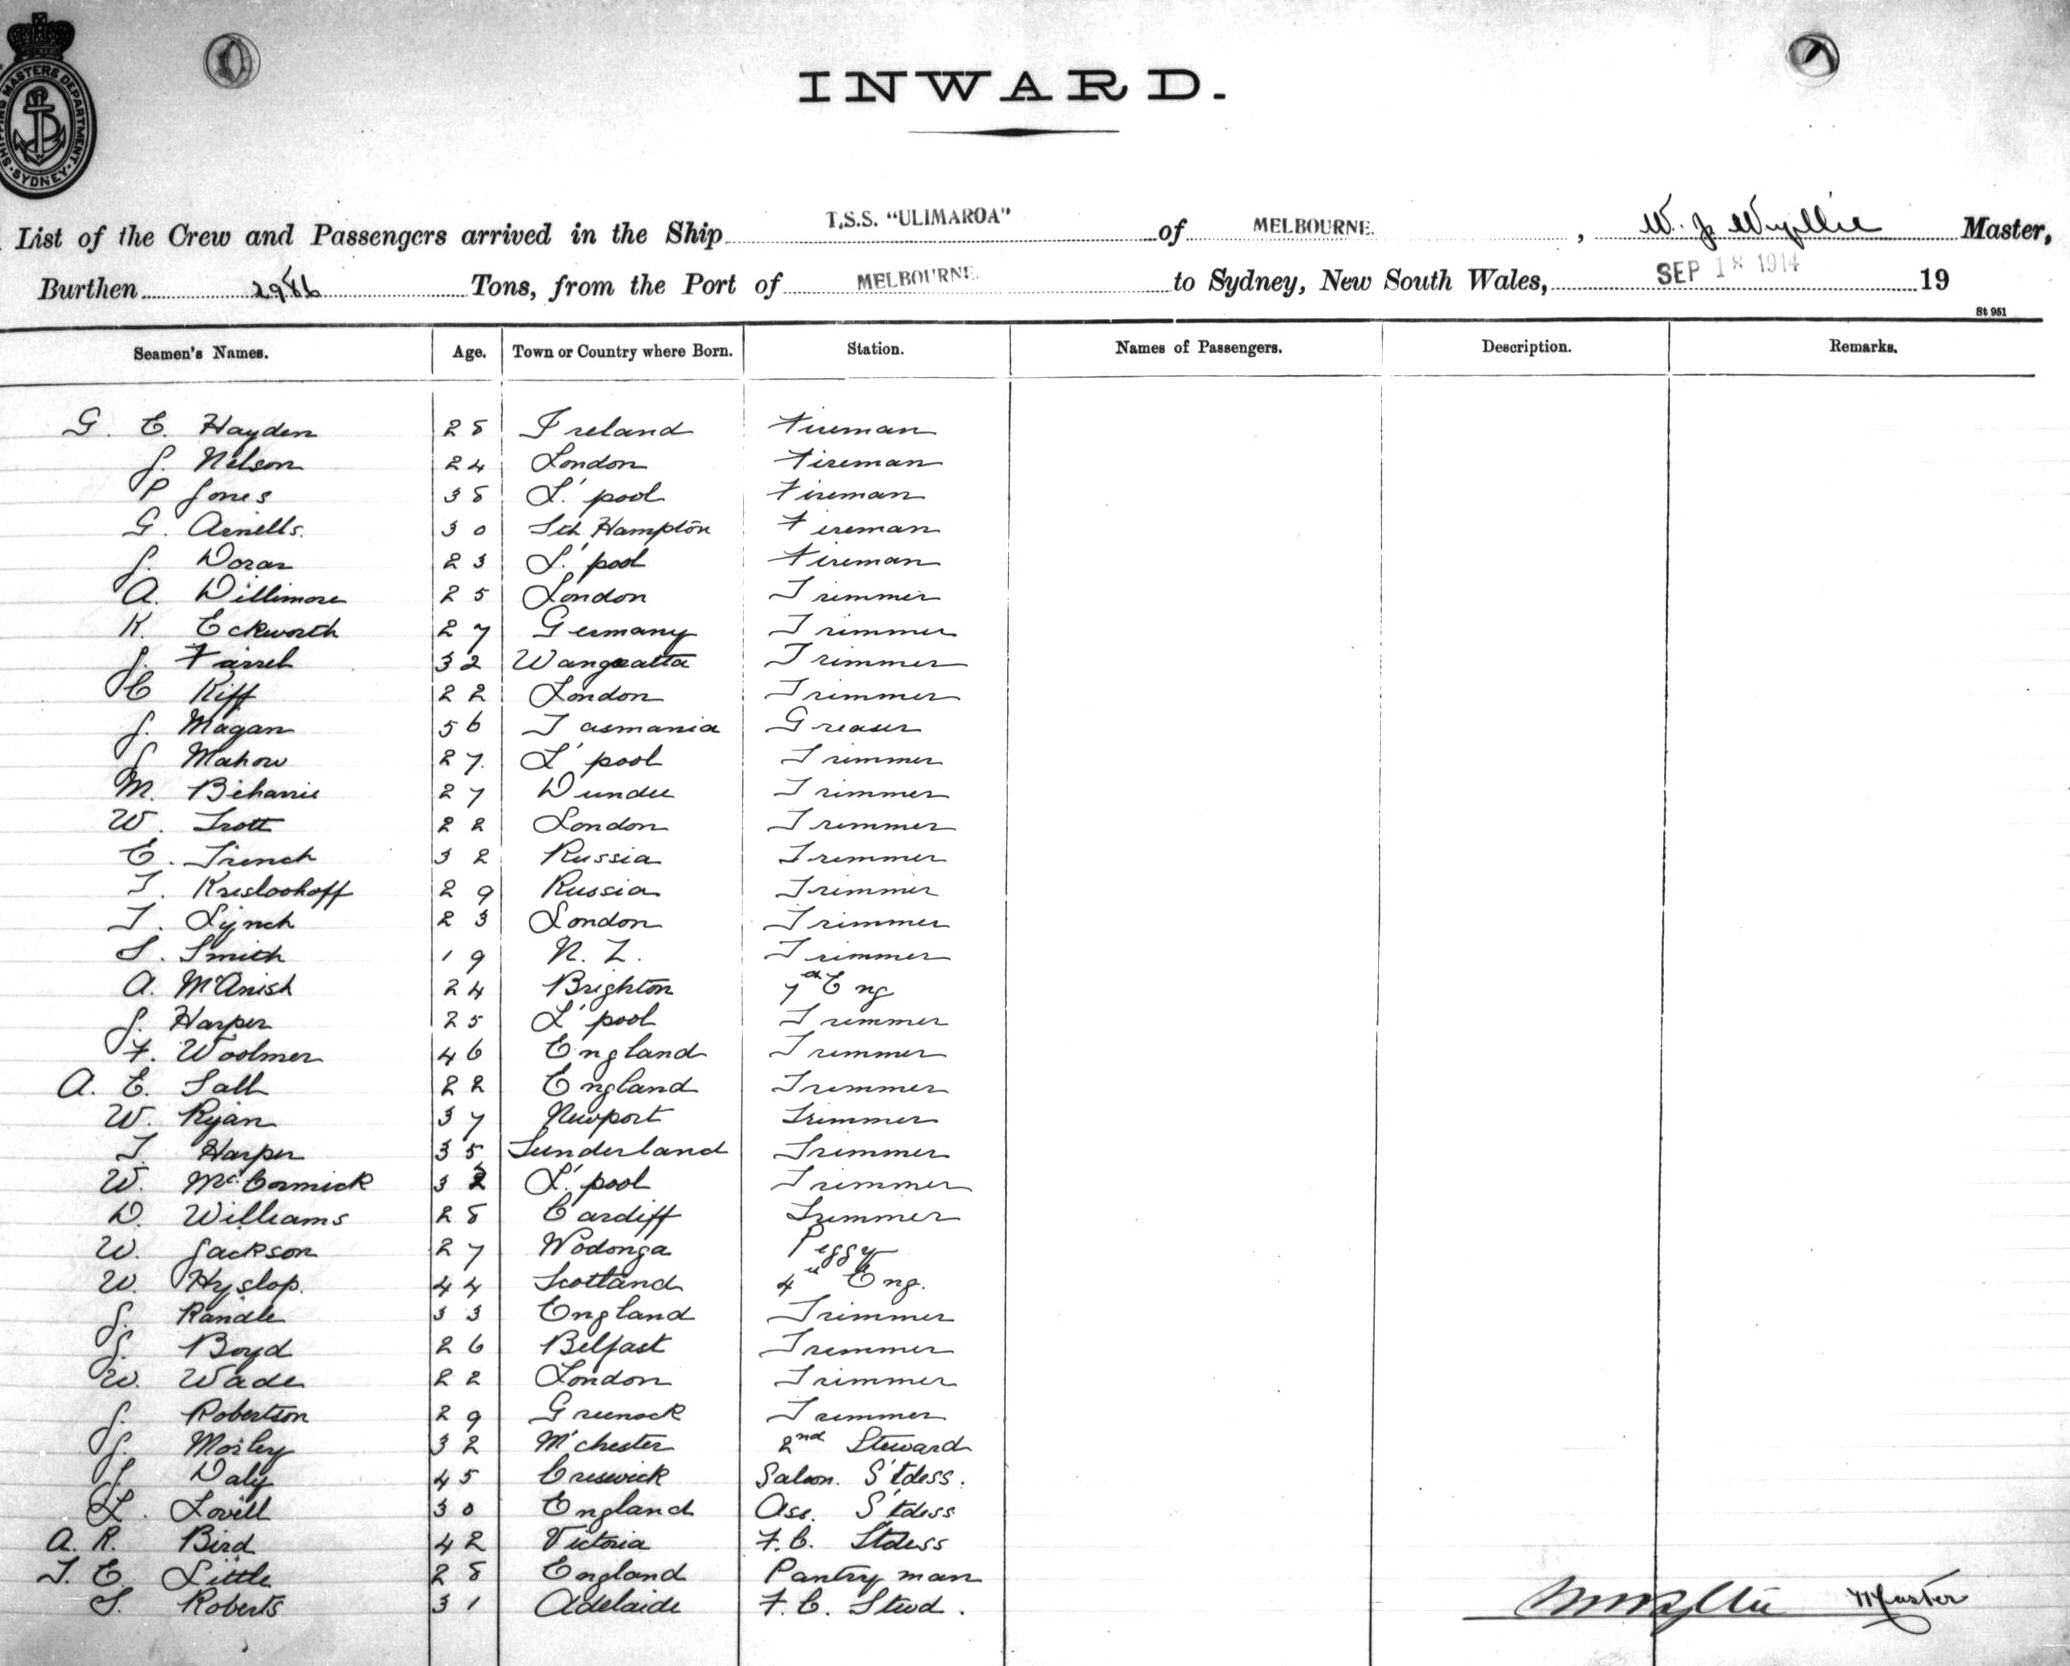 SHIPPING MASTERS DEPARTMENT · SYDNEY ·
INWARD.
List of the Crew and Passengers arrived in the Ship T.S.S. "ULIMAROA" of MELBOURNE. , W. J. Wyllie Master,
Burthen 2986 Tons, from the Port of MELBOURNE. to Sydney, New South Wales, SEP 18 1914 19
St 951
Seamen's Names. Age. Town or Country where Born. Station. Names of Passengers. Description. Remarks.
G. E. Hayden 28 Ireland Fireman
J. Nelson 24 London Fireman
P Jones 38 L'pool Fireman
G. Arnells. 30 Sth Hampton Fireman
J. Doran 23 L'pool Fireman
A. Dillimore 25 London Trimmer
K. Eckworth 27 Germany Trimmer
J. Farrel 32 Wangaratta Trimmer
C Kiff 22 London Trimmer
J. Magan 56 Tasmania Greaser
J Mahow 27. L'pool Trimmer
M. Biharrie 27 Dundee Trimmer
W. Trott 22 London Trimmer
E. Trench 32 Russia Trimmer
T. Kreslookoff 29 Russia Trimmer
T. Lynch 23 London Trimmer
S. Smith 19 N. Z. Trimmer
A. McAnish 24 Brighton 7th Eng
J. Harper 25 L'pool Trimmer
F. Woolmer 46 England Trimmer
A. E. Sall 22 England Trimmer
W. Ryan 37 Newport Trimmer
T. Harper 35 Sunderland Trimmer
W. McCormick 32 L'pool Trimmer
D. Williams 28 Cardiff Trimmer
W. Jackson 27 Wodonga Peggy
W. Hyslop. 44 Scotland 4th Eng.
J. Randle 33 England Trimmer
J. Boyd 26 Belfast Trimmer
W. Wade 22 London Trimmer
J. Robertson 29 Greenock Trimmer
J. Morley 32 M'chester 2nd Steward
J Daly 45 Creswick Saloon. S'tdess.
L. Lovell 30 England Ass. S'tdess
A. R. Bird 42 Victoria F.C. Stdess
T. E. Little 28 England Pantry man
S. Roberts 31 Adelaide F.C. Stwd.
W J Wyllie Master